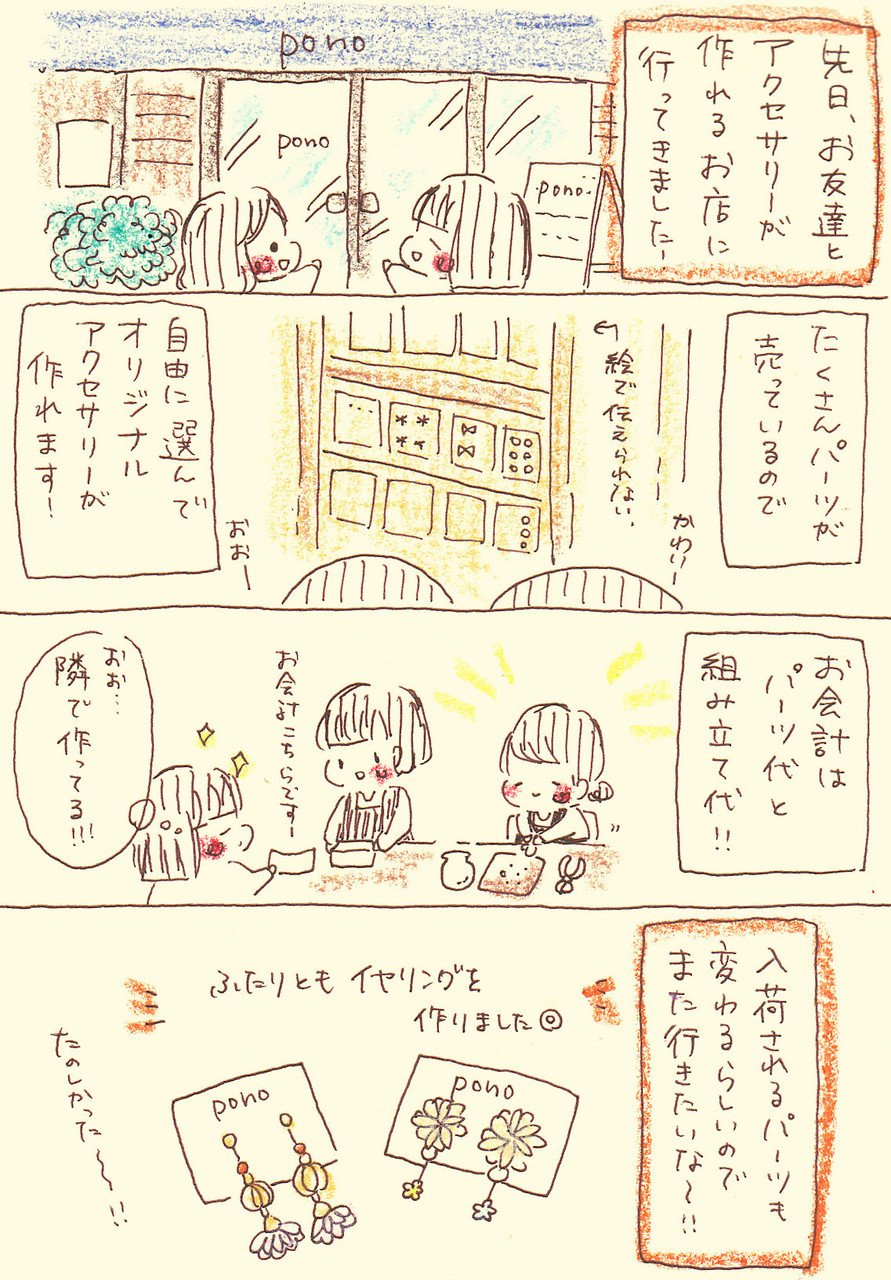 先日、お友達と
アクセサリーが
作れるお店に
行ってきましたー
pono
pono
pono
たくさんパーツが
売っているので
かわいー
絵で伝えられない、
おおー
自由に選んで
オリジナル
アクセサリーが
作れます!
お会計は
パーツ代と
組み立て代!!
お会計こちらですー
おお…
隣で作ってる!!!
入荷されるパーツも
変わるらしいので
また行きたいな〜!!
ふたりともイヤリングを
作りました◎
pono
pono
たのしかった〜〜!!